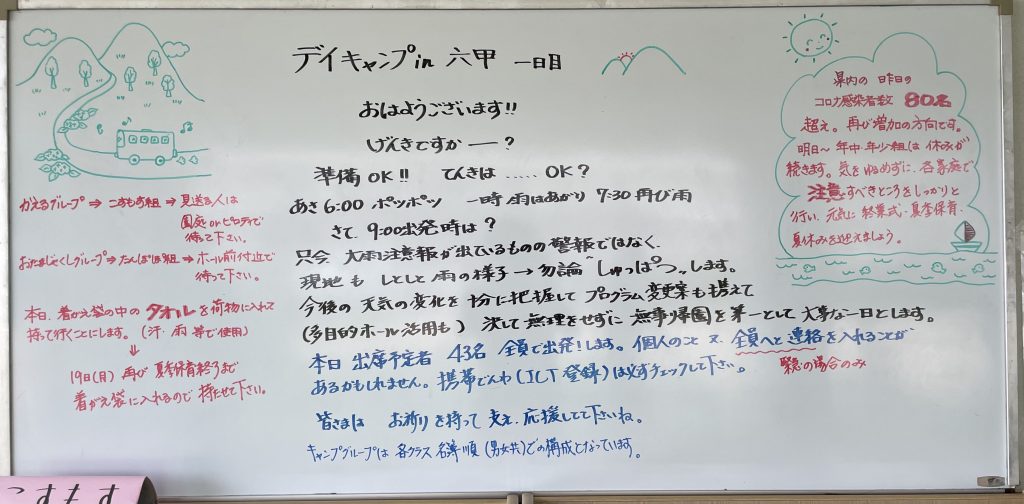 デイキャンプin 六甲 一日目
おはようございます!!
げんきですかー?
準備OK!! てんきは ..... OK?
あさ 6:00 ポツポツ 一時 雨はあがり 7:30 再び雨
さて、9:00出発時は?
只今 大雨注意報が出ているものの警報ではなく、
現地も しとしと雨の様子→勿論 “しゅっぱつ”します。
今後の 天気の変化を十分に把握して プログラム変更案も携えて
(多目的ホール活用も) 決して無理をせずに 無事帰園を第一として大事な一日とします。
本日 出席予定者 43名 全員で出発!します。個人のこと 又、全員へと連絡を入れることが
あるかもしれません。携帯でんわ(ICT登録)は必ずチェックして下さい。
緊急の場合のみ
皆さまは お祈りを持って 支え、応援してて下さいね。
キャンプグループは 各クラス 名簿順(男女共)での構成となっています。
かえるグループ ⇒ こすもす組 ⇒ 見送る人は
園庭 or ピロティで
待って下さい。
おたまじゃくしグループ⇒たんぽぽ組⇒ホール前付近で
待って下さい。
本日、着がえ袋の中の タオルを荷物に入れて
持って行くことにします。(汗・雨 等で使用)
↓
19日(月) 再び 夏季保育終了まで
着がえ袋に入れるので 持たせて下さい。
県内の 昨日の
コロナ感染者数 80名
超え。再び増加の方向です。
明日〜 年中・年少組は 休みが
続きます。気をゆるめずに、各家庭で
注意すべきところをしっかりと
行い、元気に 終業式・夏季保育・
夏休みを迎えましょう。
こすもす